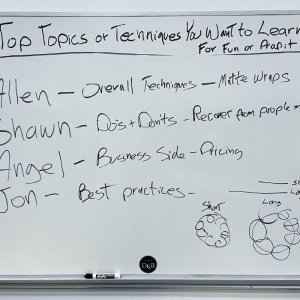 Top Topics or Techniques You Want to Learn
For Fun or Profit
Allen - Overall Techniques - Matte Wraps
Shawn - Do's + Dont's - Recover from people m
Angel - Business Side - Pricing
Jon - Best practices -
Short
Long
DRB